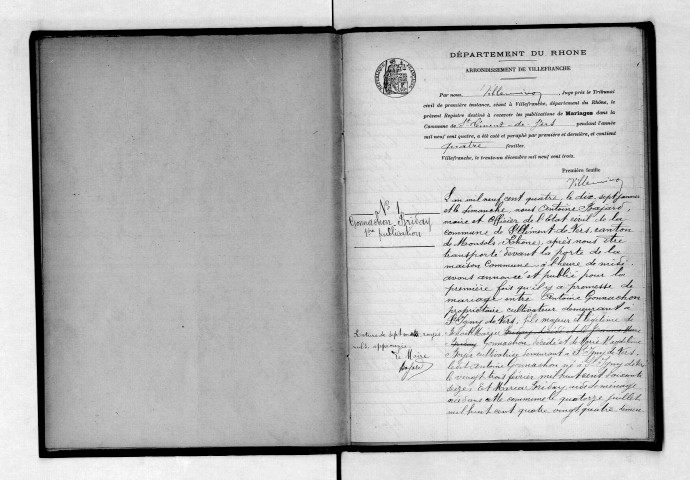 DÉPARTEMENT DU RHONE
ARRONDISSEMENT DE VILLEFRANCHE
Par nous, Juge près le Tribunal
civil de première instance, séant à Villefranche, département du Rhône, le
présent Registre destiné à recevoir les publications de Mariages dans la
Commune de St Clément-de-Vers pendant l'année
mil neuf cent quatre, a été coté et paraphé par première et dernière, et contient
quatre feuilles.
Villefranche, le trente-un décembre mil neuf cent trois.
Première feuille
No 1
Gonnachon
1ère publication
L'an mil neuf cent quatre, le dix sept janvier
et le dimanche, nous Antoine
maire et Officier de l'état civil de la
commune de St Clément de Vers, canton
de Monsols (Rhône), après nous être
transporté devant la porte de la
maison Commune, à l'heure de midi,
avons annoncé et publié pour la
première fois qu'il y a promesse de
mariage entre Antoine Gonnachon
propriétaire cultivateur demeurant à
St Igny de Vers, fils majeur et légitime de
Gonnachon décédé et de Marie Magdeleine
cultivatrice demeurant à St Igny de Vers
le dit Antoine Gonnachon né à St Igny de Vers
le vingt trois février mil huit cent soixante
seize; Et Maria
née en cette commune le quatorze juillet
mil huit cent quatre vingt quatre
Rature de sept mots rayés
nuls approuvée
Le Maire